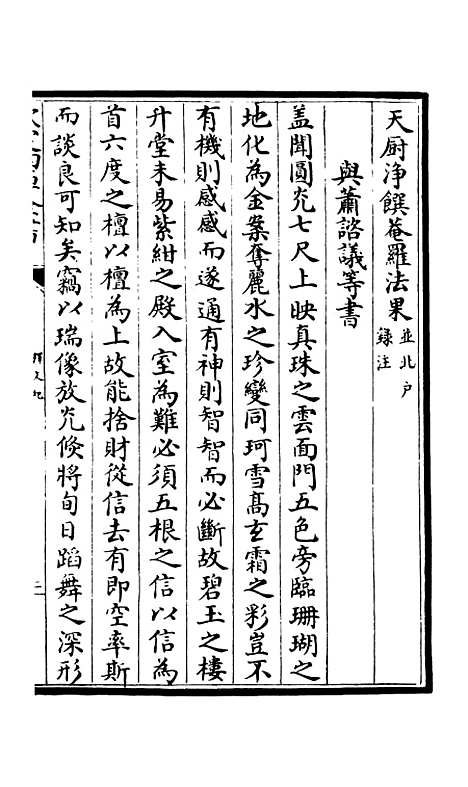 天厨浄饌菴羅法果並北户
録注
與蕭諮議等書
盖聞圓光七尺上映真珠之雲面門五色旁臨珊瑚之
地化為金案奪麗水之珍變同珂雪高玄霜之彩豈不
有機則感感而遂通有神則智智而必斷故碧玉之樓
升堂未易紫紺之殿入室為難必須五根之信以信為
首六度之檀以檀為上故能捨財從信去有即空率斯
而談良可知矣竊以瑞像放光倐將旬日蹈舞之深形
釋文紀
二